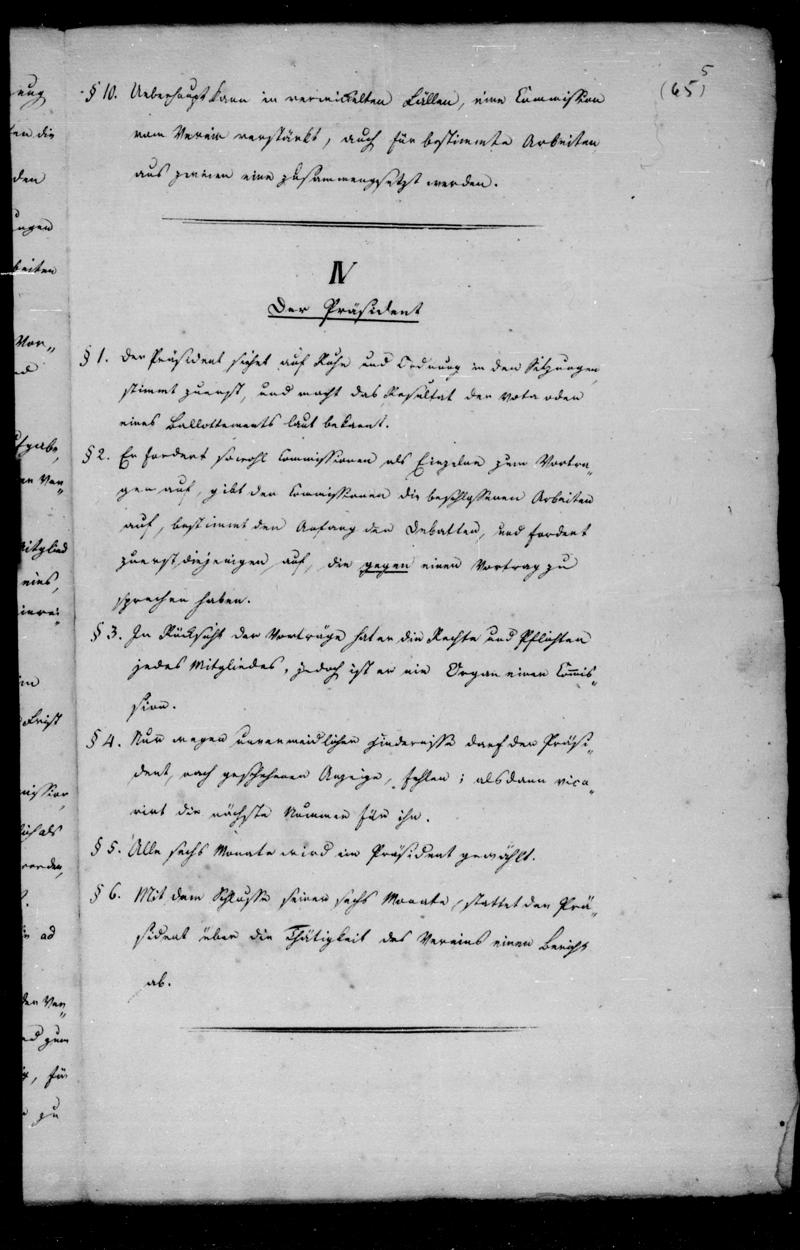 5
(65)
§ 10. Ueberhaupt kann in verwickelten Fällen, eine Commission
vom Verein verstärkt, auch für bestimmte Arbeiten
aus zweien eine zusammengesetzt werden.
IV
Der Präsident
§ 1. Der Präsident sieht auf Ruhe und Ordnung in den Sitzungen,
stimmt zuerst, und macht das Resultat der Vota oder
eines Ballottements laut bekannt.
§ 2. Er fordert sowohl Commissionen als Einzelne zum Vortra-
gen auf, gibt den Commissionen die beschlossenen Arbeiten
auf, bestimmt den Anfang der Debatten, und fordert
zuerst diejenigen auf, die gegen einen Vortrag zu
sprechen haben.
§ 3. In Rücksicht der Vorträge hat er die Rechte und Pflichten
jedes Mitgliedes, jedoch ist er nie Organ einer Commis-
sion.
§ 4. Nur wegen unvermeidlicher Hindernisse darf der Präsi-
dent, nach geschehener Anzeige, fehlen; alsdann vica-
rirt die nächste Nummer für ihn.
§ 5. Alle sechs Monate wird ein Präsident gewählt.
§ 6. Mit dem Schlusse seiner sechs Monate, stattet der Prä-
sident über die Thätigkeit des Vereins einen Bericht
ab.